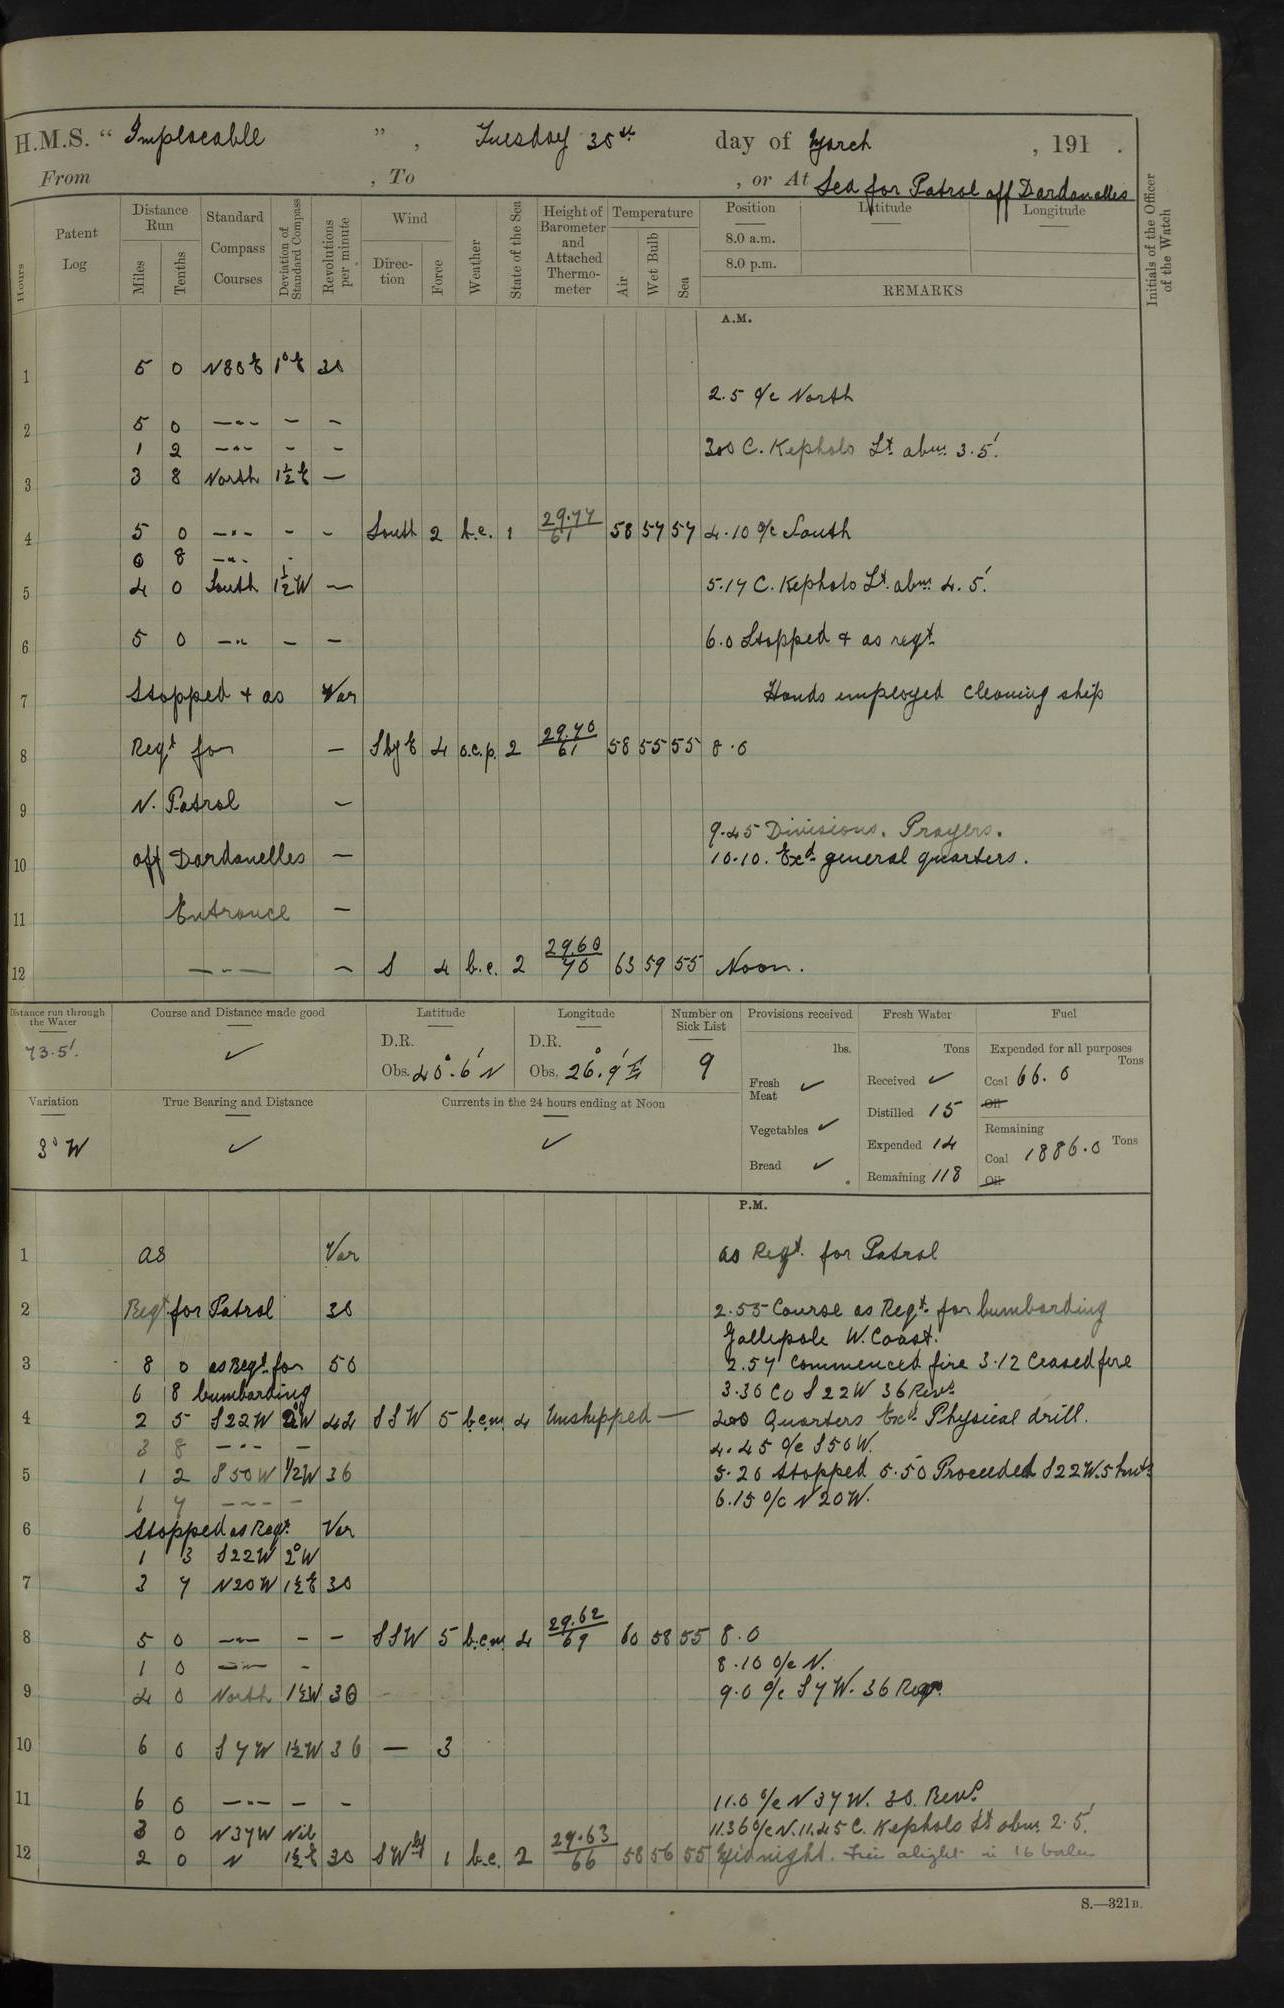 H.M.S. “ Implacable ” , Tuesday 30th day of March , 191 .
From , To , or At Sea for Patrol off Dardanelles
Hours Patent Log Distance Run Miles Tenths Standard Compass Courses Deviation of Standard Compass Revolutions per minute Wind Direction Force Weather State of the Sea Height of Barometer and Attached Thermometer Temperature Air Wet Bulb Sea Position Latitude Longitude Initials of the Officer of the Watch
8.0 a.m.
8.0 p.m.
REMARKS
A.M.
1 5 0 N80E 1°E 30
2.5 a/c North
2 5 0 —"— – –
1 2 —"— – – 300 C. Kephalo Lt abm 3.5'.
3 3 8 North 1½E —
4 5 0 —"— – – South 2 b.c. 1 29.77/61 58 57 57 4.10 a/c South
0 8 —"— -
5 4 0 South 1½W — 5.17 C. Kephalo Lt. abm. 4.5'.
6 5 0 —"— – – 6.0 Stopped & as reqt
7 Stopped & as Var Hands employed cleaning ship
8 Reqt for — SbyE 4 o.c.p. 2 29.70/61 58 55 55 8.0
9 N. Patrol —
9.45 Divisions. Prayers.
10 off Dardanelles — 10.10. Exd general quarters.
11 Entrance —
12 —"— – S 4 b.c. 2 29.60/70 63 59 55 Noon.
Distance run through the Water Course and Distance made good Latitude Longitude Number on Sick List Provisions received Fresh Water Fuel
73.5'. ✓ D.R. D.R. 9 lbs. Tons Expended for all purposes Tons
Obs. 40°.6' N Obs. 26°.9' E Fresh Meat ✓ Received ✓ Coal 66.0
Oil
Variation True Bearing and Distance Currents in the 24 hours ending at Noon Vegetables ✓ Distilled 15 Remaining
3° W ✓ ✓ Bread ✓ Expended 14 Coal 1886.0 Tons
Remaining 118 Oil
P.M.
1 as Var as Reqt. for Patrol
2 Reqt for Patrol 30 2.55 Course as Reqt. for bumbarding
Gallepole W. Coast.
3 8 0 as Reqt. for 50 2.57 Commenced fire 3.12 Ceased fire
6 8 bumbarding 3.30 Co S22W 36 Revs
4 2 5 S22W 2°W 42 SSW 5 b.c.m. 4 Unshipped — 400 Quarters Exd Physical drill.
3 8 —"— – 4.45 a/c S50W.
5 1 2 S50W ½W 36 5.20 Stopped 5.50 Proceeded S22W. 5 knots
1 7 —"— – 6.15 a/c N20W.
6 Stopped as Reqt. Var
1 3 S22W 2°W
7 3 7 N20W 1½E 30
8 5 0 —"— – – SSW 5 b.c.m. 4 29.62/69 60 58 55 8.0
1 0 —"— - 8.10 a/c N.
9 4 0 North 1½W 30 9.0 a/c S7W. 36 Revs.
10 6 0 S7W 1½W 36 — 3
11 6 0 —"— – – 11.0 a/c N37W. 30. Revs.
3 0 N37W Nil 11.36 a/c N. 11.45 C. Kephalo Lt abm 2.5'.
12 2 0 N 1½E 30 SW 1 b.c. 2 29.63/66 58 56 55 Midnight. Fires alight in 16 boilers
S.—321B.